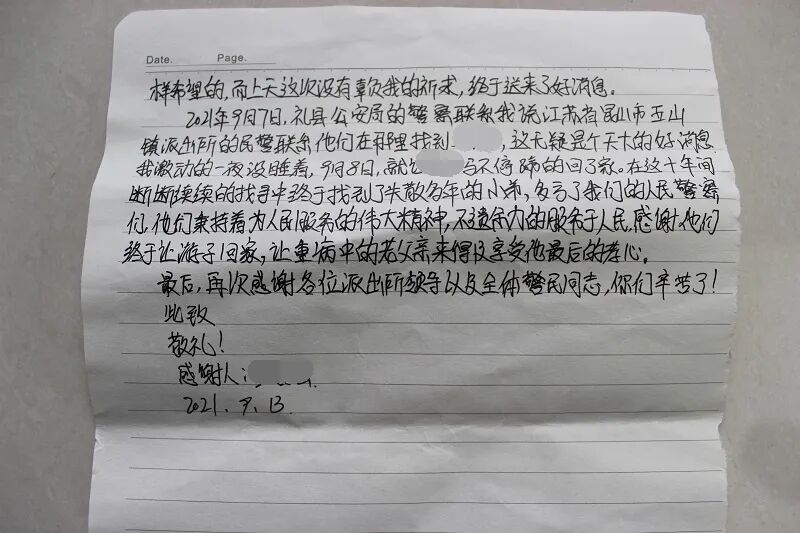 Date. Page.
样希望的，而上天这次没有辜负我的祈求，终于送来了好消息。
2021年9月7日，礼县公安局的警察联系我说江苏省昆山市玉山
镇派出所的民警联系他们在那里找到，这无疑是个天大的好消息
我激动的一夜没睡着，9月8日，就马不停蹄的回了家。在这十年间
断断续续的找寻中终于找到了失散多年的小弟，多亏了我们的人民警察
们，他们秉持着为人民服务的伟大精神，不遗余力的服务于人民，感谢他们
终于让游子回家，让重病中的老父亲来得及享受他最后的孝心。
最后，再次感谢各位派出所领导以及全体警民同志，你们辛苦了！
此致
敬礼！
感谢人：
2021.9.13